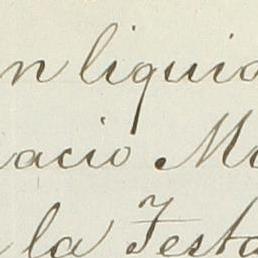 n liquid
acio M
la Testa